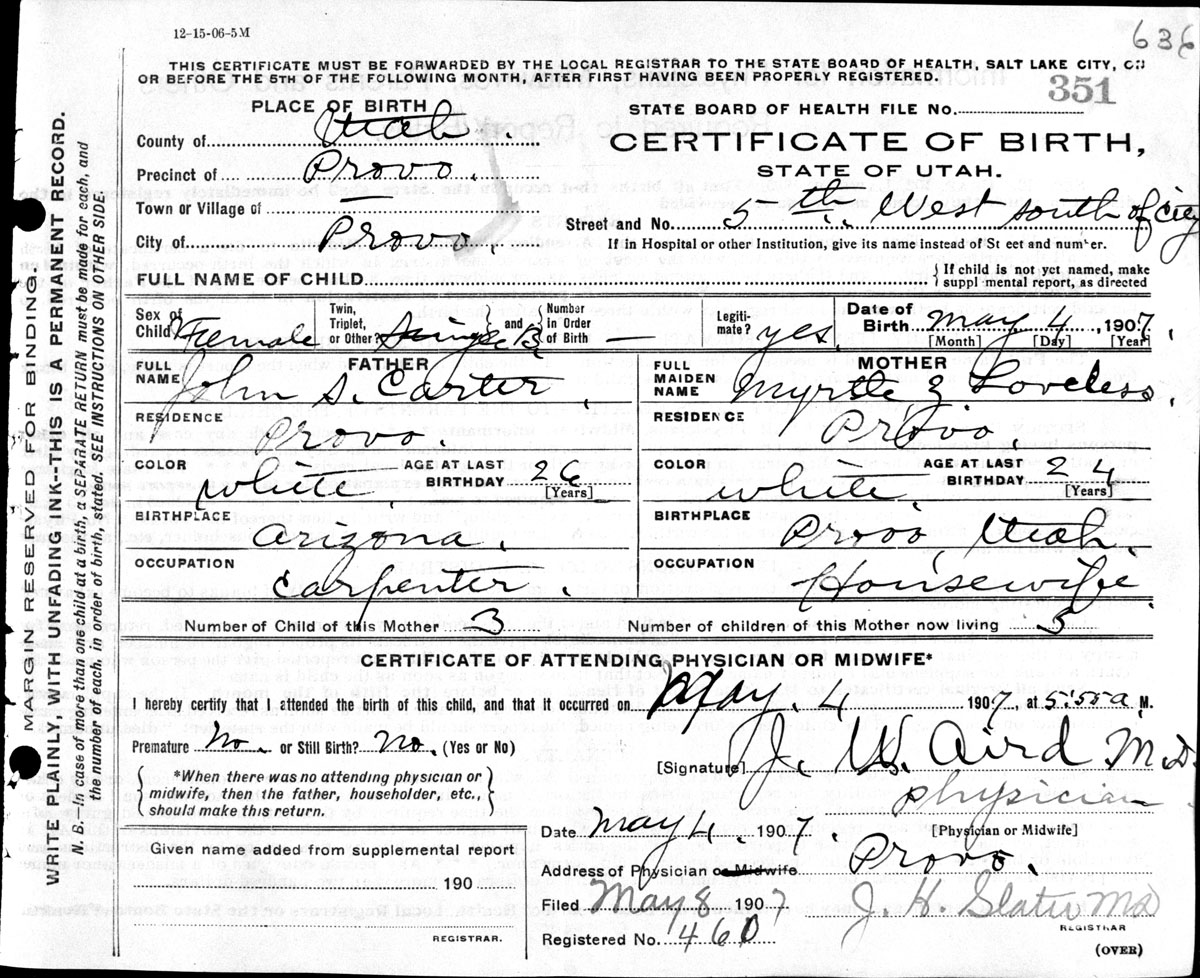 12-15-06-5M
636
THIS CERTIFICATE MUST BE FORWARDED BY THE LOCAL REGISTRAR TO THE STATE BOARD OF HEALTH, SALT LAKE CITY, ON
OR BEFORE THE 5TH OF THE FOLLOWING MONTH, AFTER FIRST HAVING BEEN PROPERLY REGISTERED.
PLACE OF BIRTH
STATE BOARD OF HEALTH FILE No. 351
County of Utah
CERTIFICATE OF BIRTH,
Precinct of Provo.
STATE OF UTAH.
Town or Village of —
Street and No. 5th. West south of City
City of Provo
If in Hospital or other Institution, give its name instead of St eet and number.
FULL NAME OF CHILD
{If child is not yet named, make
suppl mental report, as directed
Sex of Child Female
Twin, Triplet, or Other?
and
Number in Order of Birth —
Legiti- mate? yes
Date of Birth May 4, 1907
[Month] [Day] [Year]
FATHER
FULL NAME John S. Carter
MOTHER
FULL MAIDEN NAME Myrtle Z Loveless,
RESIDENCE Provo.
RESIDENCE Provo.
COLOR White. AGE AT LAST BIRTHDAY 26 [Years]
COLOR White. AGE AT LAST BIRTHDAY 24 [Years]
BIRTHPLACE Arizona.
BIRTHPLACE Provo, Utah.
OCCUPATION Carpenter.
OCCUPATION Housewife.
Number of Child of this Mother 3
Number of children of this Mother now living 3
CERTIFICATE OF ATTENDING PHYSICIAN OR MIDWIFE*
I hereby certify that I attended the birth of this child, and that it occurred on May. 4 1907, at 5:55 a. M.
Premature No. or Still Birth? No. (Yes or No)
[Signature] J. W. Aird M.D.
*When there was no attending physician or
midwife, then the father, householder, etc.,
should make this return.
physician
[Physician or Midwife]
Date May 4, 1907.
Given name added from supplemental report
190
REGISTRAR.
Address of Physician or Midwife Provo.
Filed May 8 1907
J. H. Slater MD
REGISTRAR
Registered No. 460
(OVER)
MARGIN RESERVED FOR BINDING.
WRITE PLAINLY, WITH UNFADING INK—THIS IS A PERMANENT RECORD.
N. B.—In case of more than one child at a birth, a SEPARATE RETURN must be made for each, and
the number of each, in order of birth, stated. SEE INSTRUCTIONS ON OTHER SIDE.